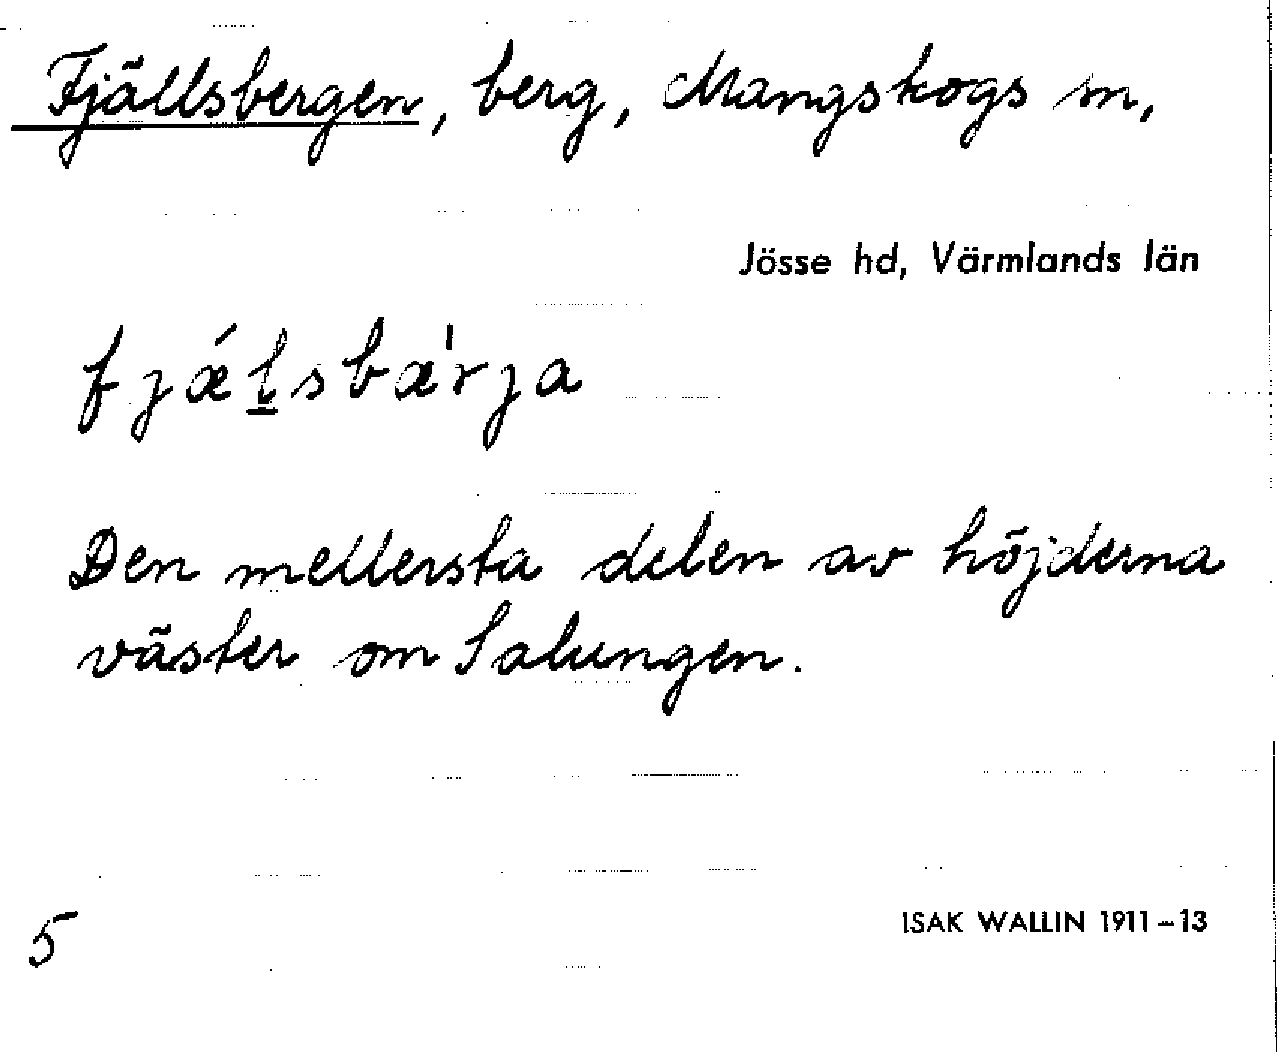 Fjällsbergen, berg, Mangskogs sn,
Jösse hd, Värmlands län
fjǽl̲sbæ̍rja
Den mellersta delen av höjderna
väster om Salungen.
5
ISAK WALLIN 1911–13